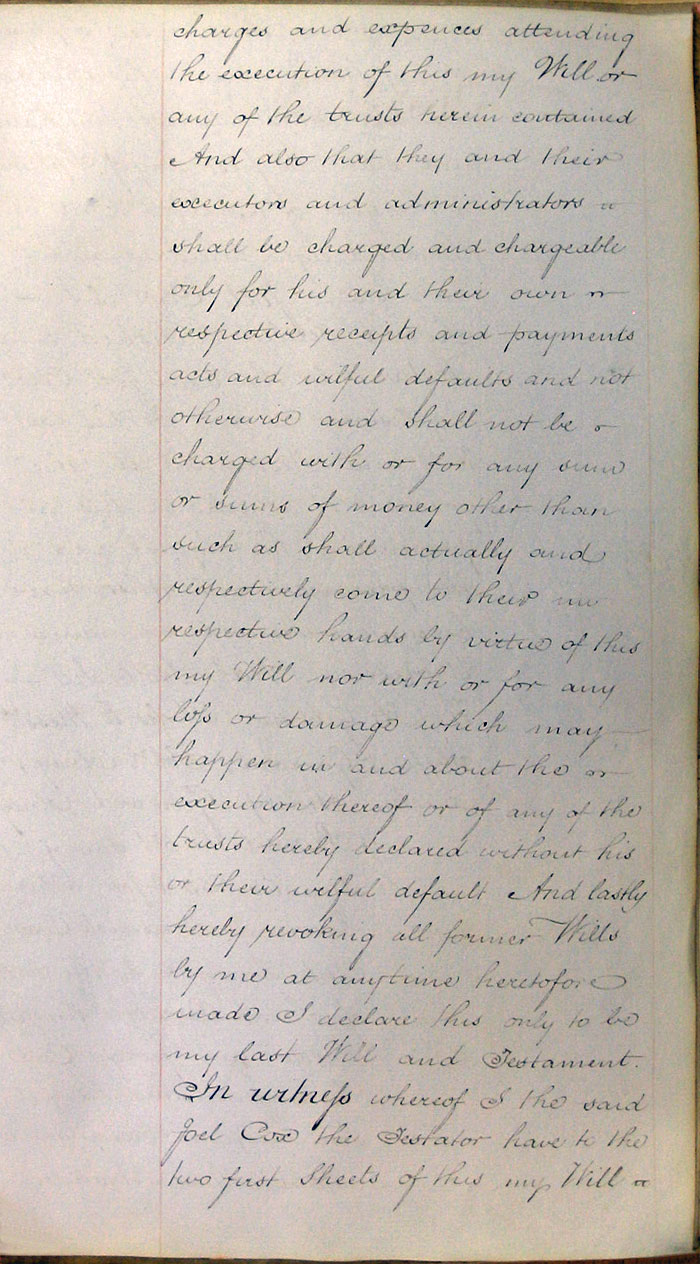 charges and expences attending
the execution of this my Will or
any of the trusts herein contained
And also that they and their
executors and administrators
shall be charged and chargeable
only for his and their own
respective receipts and payments
acts and wilful defaults and not
otherwise and shall not be
charged with or for any sum
or sums of money other than
such as shall actually and
respectively come to their
respective hands by virtue of this
my Will nor with or for any
loſs or damage which may
happen in and about the
execution thereof or of any of the
trusts hereby declared without his
or their wilful default And lastly
hereby revoking all former Wills
by me at anytime heretofore
made I declare this only to be
my last Will and Testament.
In witneſs whereof I the said
Joel Cox the Testator have to the
two first Sheets of this my Will